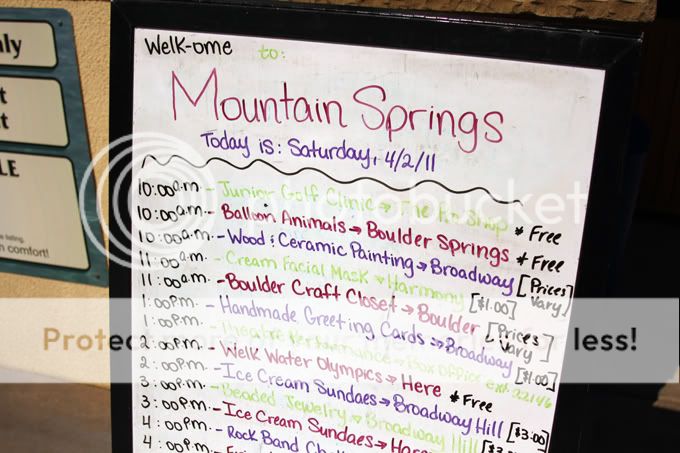 nly
t
t
LE
listing.
h comfort!
Welk-ome to:
Mountain Springs
Today is: Saturday, 4/2/11
10:00a.m. - Junior Golf Clinic → The Pro Shop * Free
10:00a.m. - Balloon Animals → Boulder Springs * Free
10:00a.m. - Wood & Ceramic Painting → Broadway [Prices Vary]
11:00a.m. - Cream Facial Mask → Harmony [$1.00]
11:00a.m. - Boulder Craft Closet → Boulder [Prices Vary]
1:00p.m. - Handmade Greeting Cards → Broadway [$1.00]
1:00p.m. - Theatre Performance → Box Office ext. 22146
2:00p.m. - Welk Water Olympics → Here * Free
2:00p.m. - Ice Cream Sundaes → Broadway Hill [$3.00]
3:00p.m. - Beaded Jewelry → Broadway Hill
3:00p.m. - Ice Cream Sundaes → Har
4:00p.m. - Rock Band
4:
photobucket
Protec
less!